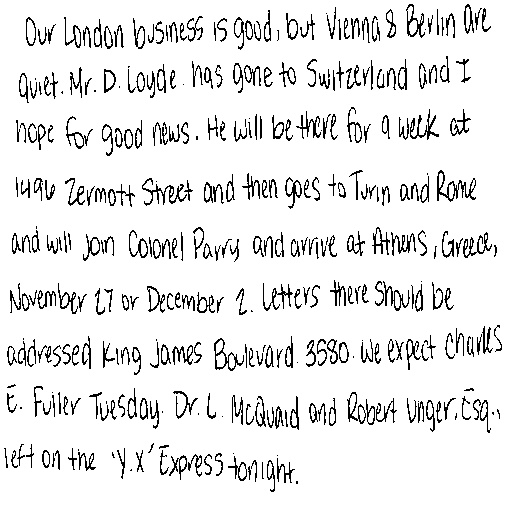 Our London business is good, but Vienna & Berlin are
quiet. Mr. D. Loyde has gone to Switzerland and I
hope for good news. He will be there for a week at
1496 Zermott Street and then goes to Turin and Rome
and will join Colonel Parry and arrive at Athens, Greece,
November 27 or December 2. Letters there should be
addressed King James Boulevard 3580. We expect Charles
E. Fuller Tuesday. Dr. L. McQuaid and Robert Unger, Esq.,
left on the 'Y.X' Express tonight.